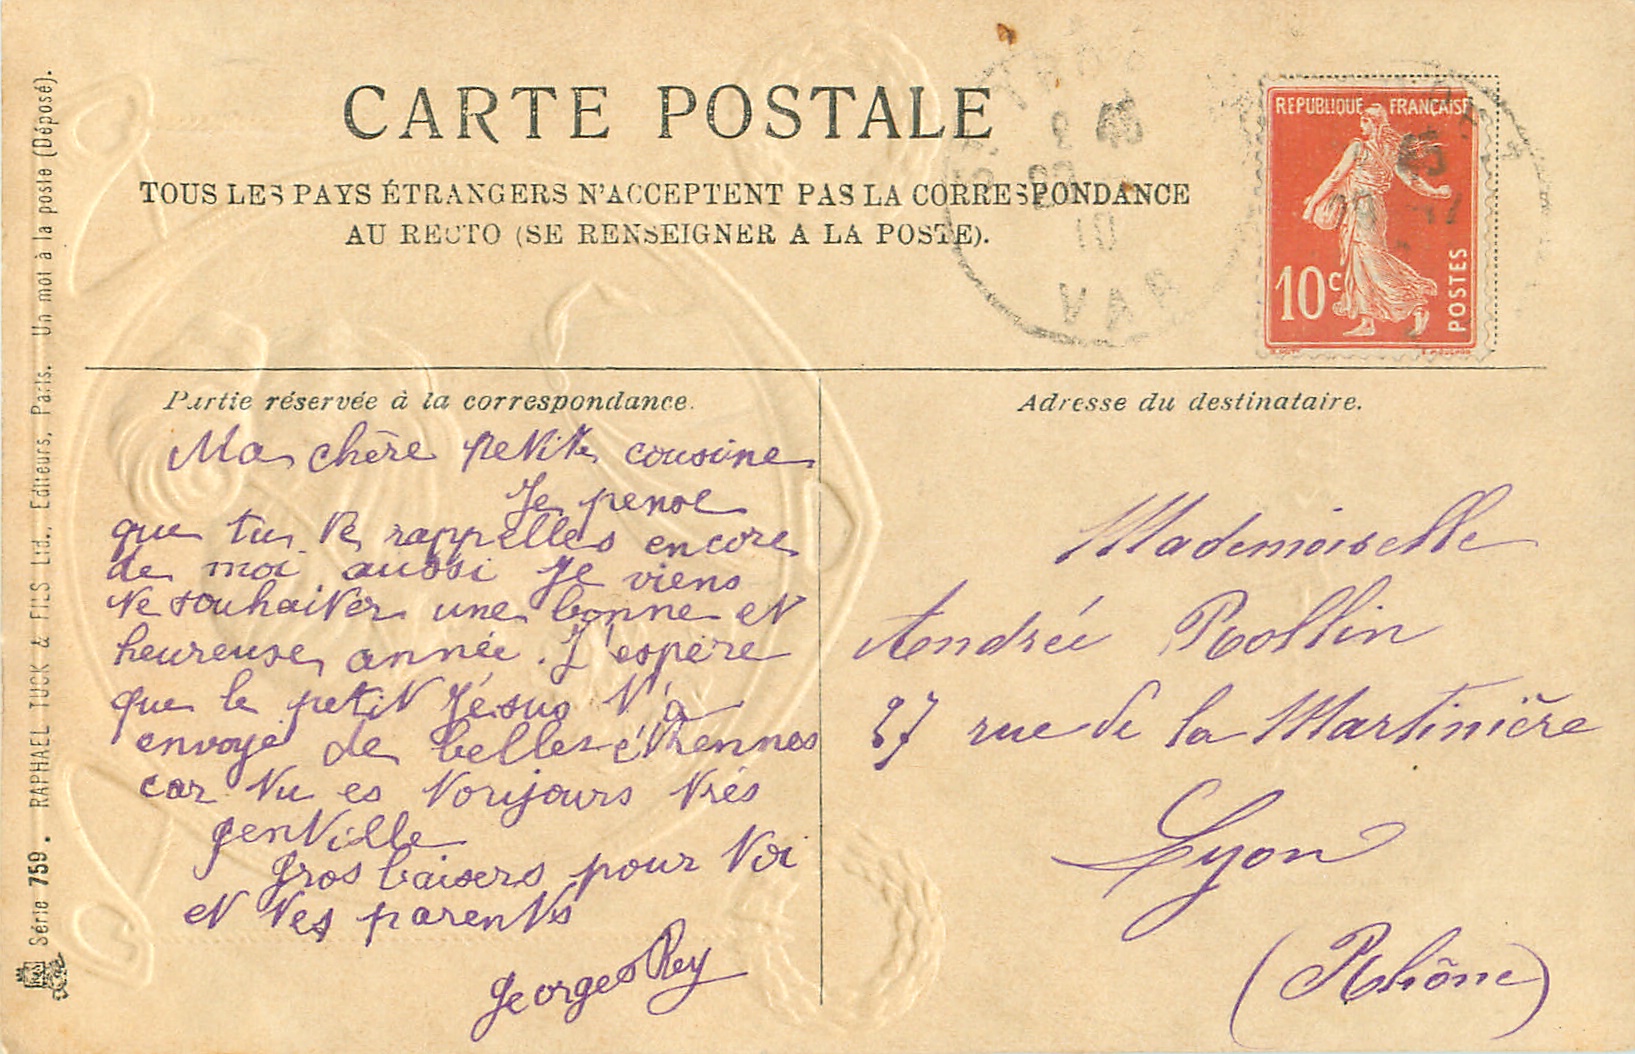 CARTE POSTALE
TOUS LES PAYS ÉTRANGERS N'ACCEPTENT PAS LA CORRESPONDANCE
AU RECTO (SE RENSEIGNER A LA POSTE).
REPUBLIQUE FRANÇAISE
10c
POSTES
Partie réservée à la correspondance.
Ma chère petite cousine
Je pense
que tu te rappelles encore
de moi aussi je viens
te souhaiter une bonne et
heureuse année. J'espère
que le petit Jésus t'a
envoyé de belles étrennes
car tu es toujours très
gentille
Gros baisers pour toi
et tes parents
Georges Rey
Adresse du destinataire.
Mademoiselle
Andrée Rollin
27 rue de la Martinière
Lyon
(Rhône)
Série 759. RAPHAEL TUCK & FILS Ltd., Editeurs, Paris. Un mot à la poste (Déposé).